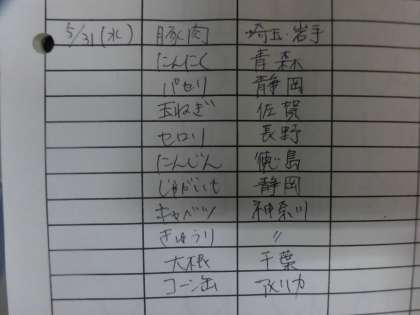 5/31(水) 豚肉 埼玉・岩手
にんにく 青森
パセリ 静岡
玉ねぎ 佐賀
セロリ 長野
にんじん 徳島
じゃがいも 静岡
キャベツ 神奈川
きゅうり 〃
大根 千葉
コーン缶 アメリカ